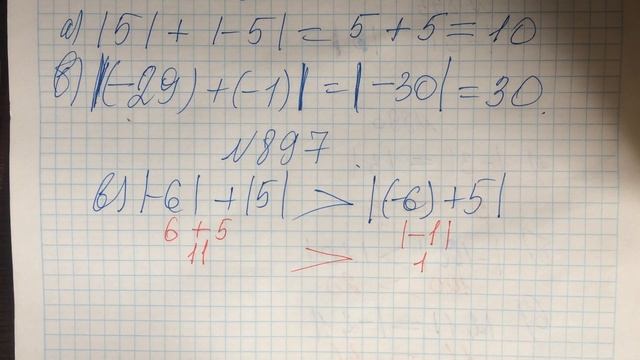 а) |5| + |-5| = 5 + 5 = 10
в) |(-29) + (-1)| = |-30| = 30.
№897
в) |-6| + |5| > |(-6) + 5|
6 + 5 |-1|
11 > 1